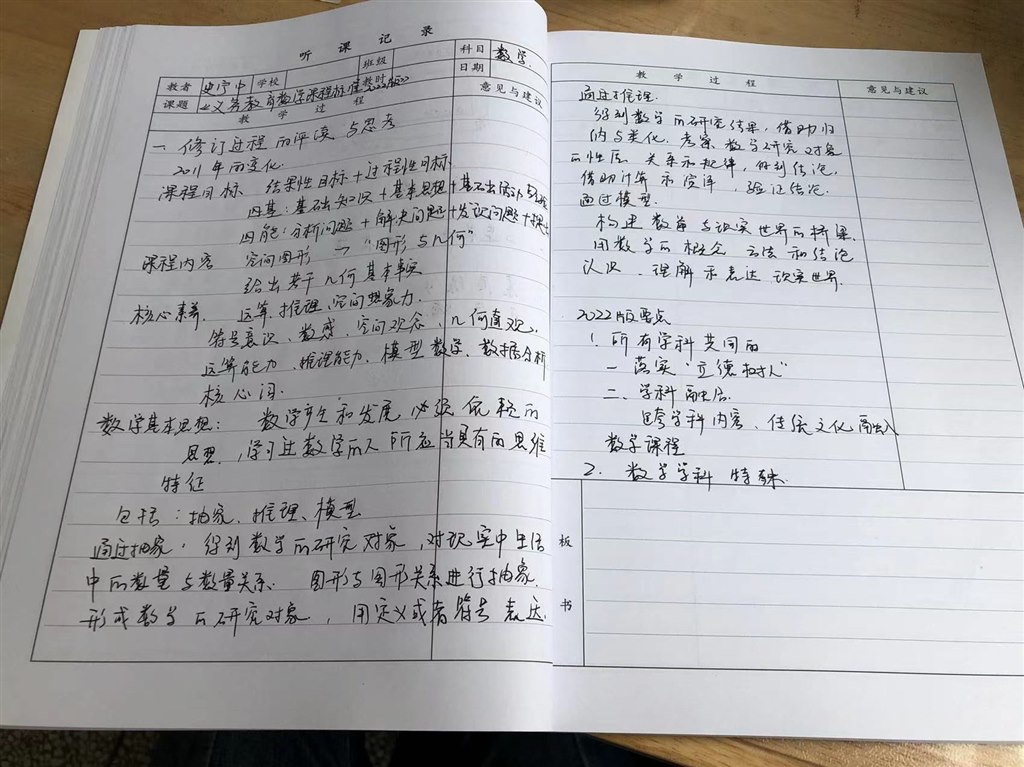 听课记录
教者 史宁中 学校 班级 科目 数学
课题 《义务教育数学课程标准 教时 日期
教学过程 意见与建议
一 修订过程的评读与思考
2011年的变化
课程目标 结果性目标+过程性目标
四基:基础知识+基本思想+基本活动
四能:分析问题+解决问题+发现问题+提出
课程内容 空间图形 → “图形与几何”
给出若干几何基本事实
核心素养 运算、推理、空间想象力.
符号意识、数感、空间观念、几何直观、
运算能力、推理能力、模型数学、数据分析
核心词.
数学基本思想: 数学产生和发展必须依赖的
思想,学习过数学的人所应当具有的思维
特征
包括:抽象、推理、模型
通过抽象. 得到数学的研究对象,对现实中生活
中的数量与数量关系. 图形与图形关系进行抽象.
形成数学的研究对象,用定义或者符号表达
教学过程 意见与建议
通过推理.
得到数学的研究结果,借助归
纳与类化.考察数学研究对象
的性质、关系和规律,得到结论,
借助计算和演译,验证结论.
通过模型.
构建数学与现实世界的桥梁,
用数学的概念、方法和结论
认识、理解和表达现实世界.
2022版要点
1.所有学科共同的
一 落实“立德树人”
二、学科融合.
跨学科内容、传统文化融入
数学课程
2. 数学学科特殊.
板
书